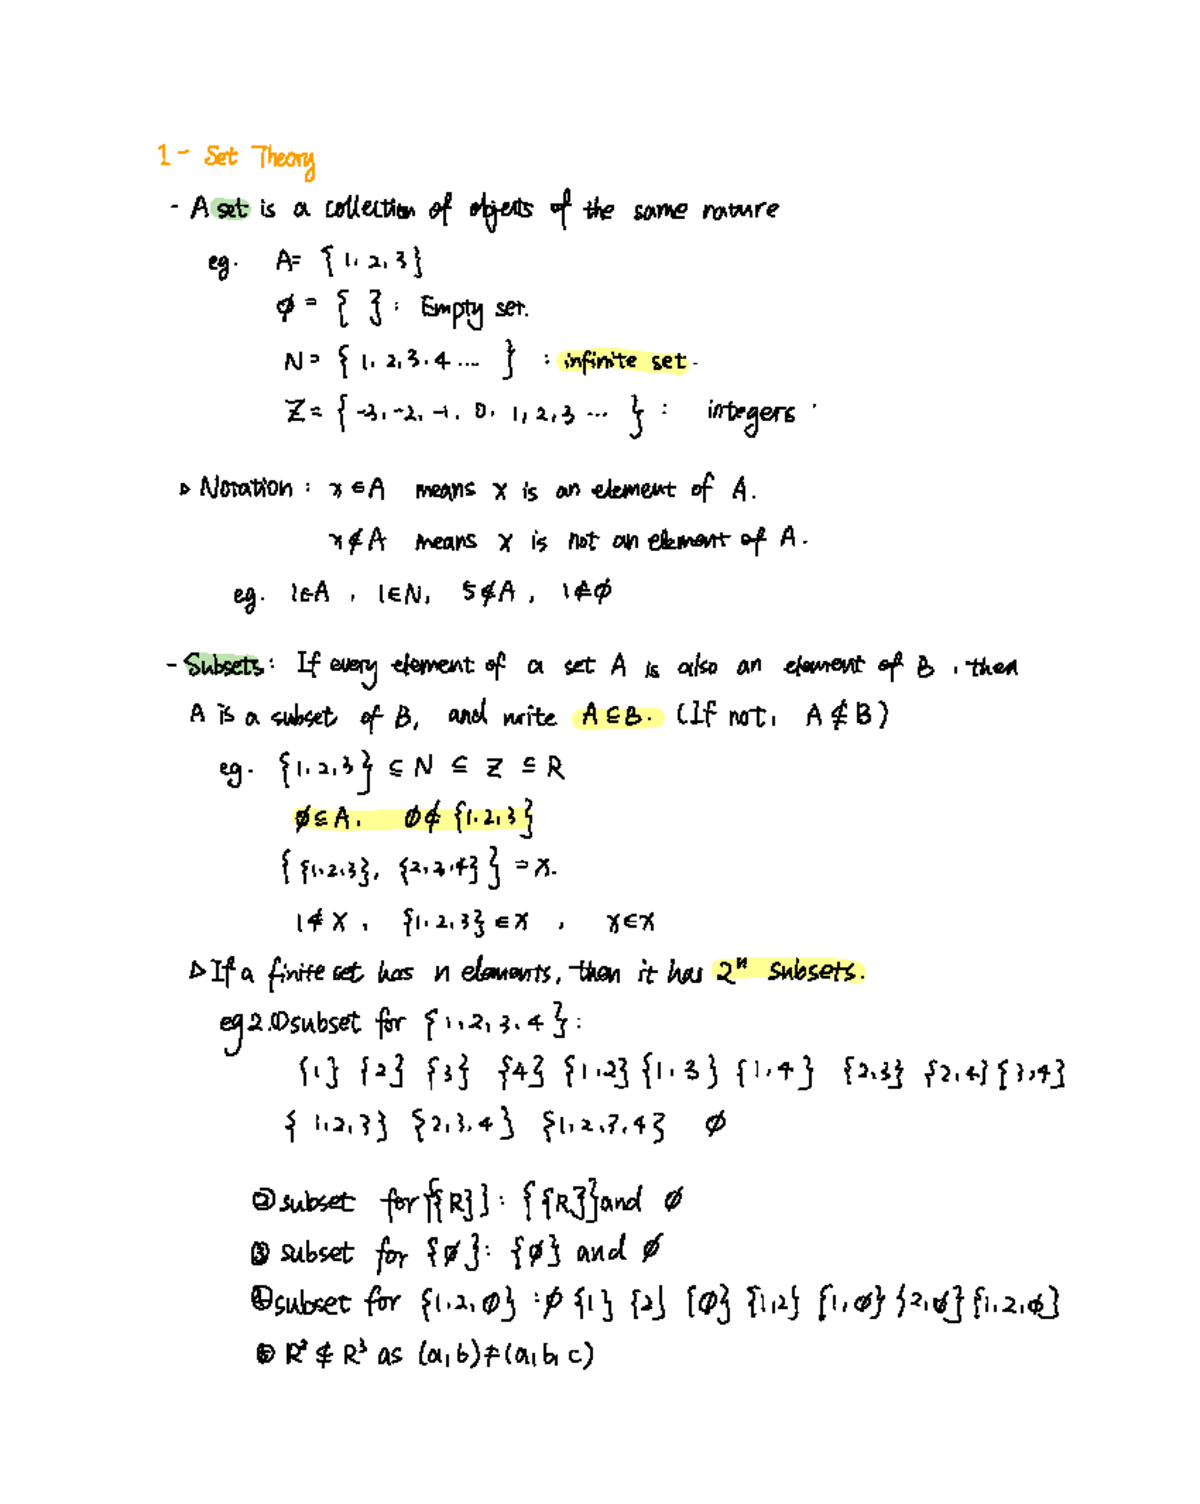 1 - Set Theory
- A set is a collection of objects of the same nature
eg. A= {1, 2, 3}
∅ = { } : Empty set.
N= { 1, 2, 3, 4 ... } : infinite set.
Z= { -3, -2, -1, 0, 1, 2, 3 ... } : integers
▷ Notation : x∈A means x is an element of A.
x∉A means x is not an element of A.
eg. 1∈A , 1∈N, 5∉A , 1∉∅
- Subsets : If every element of a set A is also an element of B , then
A is a subset of B, and write A⊆B. (If not, A⊈B)
eg. {1, 2, 3} ⊆ N ⊆ Z ⊆ R
∅⊆A. ∅∉ {1, 2, 3}
{ {1, 2, 3}, {2, 2, 4} } = x.
1∉X , {1, 2, 3} ∈X , x∈X
▷ If a finite set has n elements, then it has 2ⁿ subsets.
eg 2. ① subset for {1, 2, 3, 4} :
{1} {2} {3} {4} {1, 2} {1, 3} {1, 4} {2, 3} {2, 4} {3, 4}
{ 1, 2, 3} {2, 3, 4} {1, 2, 3, 4} ∅
② subset for {{R}} : {{R}} and ∅
③ subset for {∅} : {∅} and ∅
④ subset for {1, 2, ∅} : ∅ {1} {2} {∅} {1, 2} {1, ∅} {2, ∅} {1, 2, ∅}
⑤ R² ⊈ R³ as (a, b) ≠ (a, b, c)